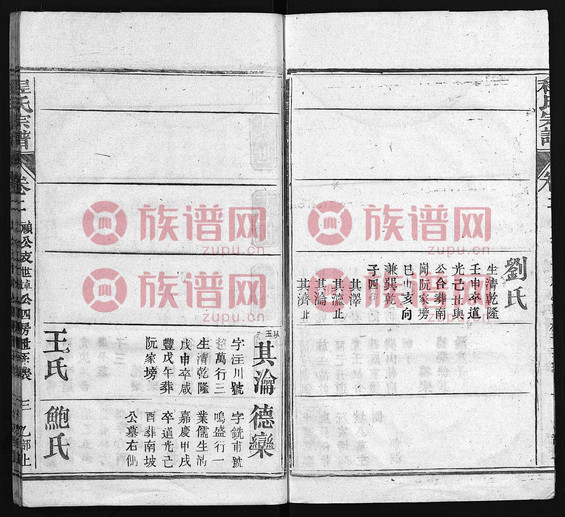 程氏宗譜
劉氏
生清乾隆
壬申卒道
光己丑與
公合葬南
岡阮家塝
巳山亥向
兼巽乾
子四
其澤
其流止
其淪
其濟止
其淪
字注川號
超萬行三
生清乾隆
戊申卒咸
豐戊午葬
阮家塝
王氏
德欒
字銑甫號
鳴盛行一
業儒生
嘉慶甲戌
卒道光己
酉葬南坡
公墓右側
鮑氏
程氏宗譜
卷二
三
乙部上
族谱网
zupu.cn
族谱网
zupu.cn
族谱网
zupu.cn
族谱网
zupu.cn